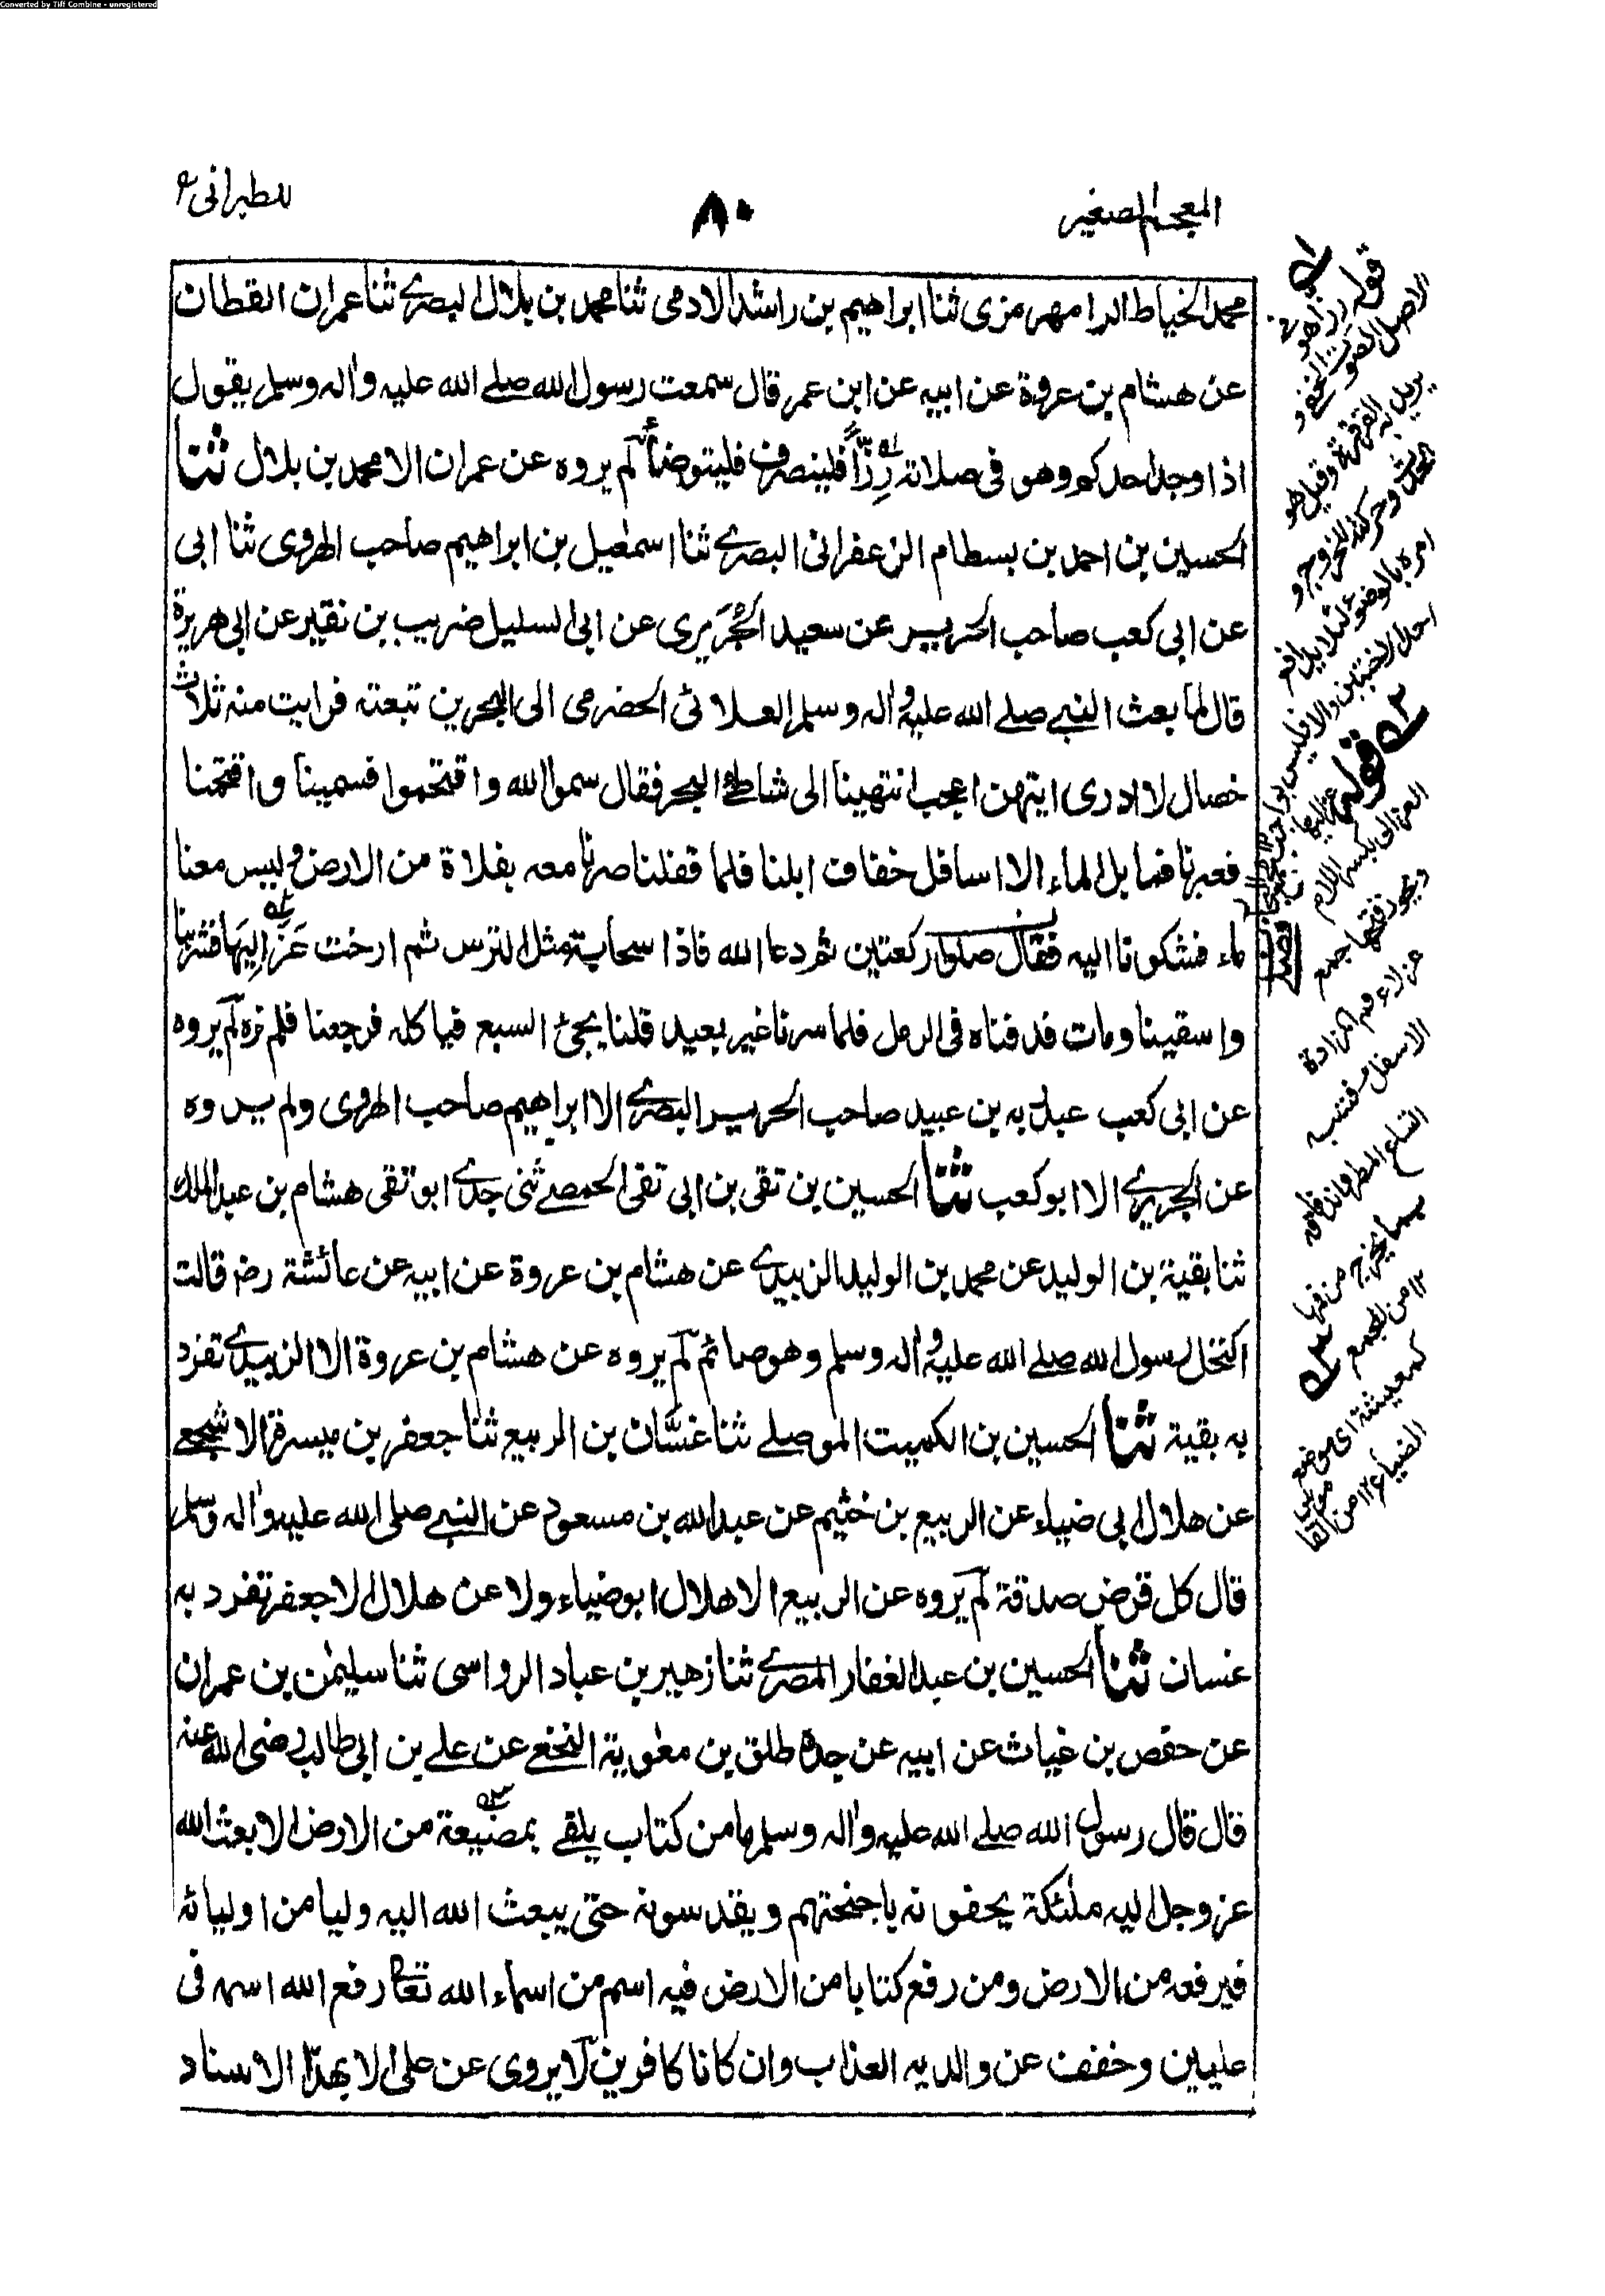 Converted by Tiff Combine - unregistered
المعجم الصغير
٨٠
للطبرانی
محمد الخیاط الرامهرمزی ثنا ابراهیم بن راشد الادمی ثنا محمد بن بلال البصرے ثنا عمران القطان
عن هشام بن عروة عن ابیه عن ابن عمر قال سمعت رسول الله صلے الله علیه واٰله وسلم یقول
اذا وجد احدکم وهو فی صلاته رِزًّا فلینصرف فلیتوضأ لم یروه عن عمران الا محمد بن بلال ثنا
الحسین بن احمد بن بسطام الزعفرانی البصرے ثنا اسمٰعیل بن ابراهیم صاحب الهروی ثنا ابی
عن ابی کعب صاحب الحریر عن سعید الجُرَیری عن ابی السلیل ضریب بن نقیر عن ابی هریرة
قال لما بعث النبے صلے الله علیه واٰله وسلم العلائی الحضرمی الی البحرین تبعته فرایت منه ثلاث
خصال لا ادری ایتهن اعجب انتهینا الی شاطئ البحر فقال سموا الله واقتحموا فسمینا واقتحمنا
فعبرنا فما بل الماء الا اسافل خفاف ابلنا فلما قفلنا صرنا معه بفلاة من الارض ولیس معنا
ماء فشکونا الیه فقال صلوا رکعتین ثم دعا الله فاذا سحابة مثل الترس ثم ارخت عَزَالِیَها فشربنا
واسقینا ومات فدفناه فی الرمل فلما سرنا غیر بعید قلنا یجئ السبع فیاکله فرجعنا فلم نره لم یروه
عن ابی کعب عبد ربه بن عبید صاحب الحریر البصرے الا ابراهیم صاحب الهروی ولم یروه
عن الجریرے الا ابو کعب ثنا الحسین بن تقی بن ابی تقی الحمصے ثنی جدے ابو تقی هشام بن عبد الملك
ثنا بقیة بن الولید عن محمد بن الولید الزبیدے عن هشام بن عروة عن ابیه عن عائشة رض قالت
اکتحل رسول الله صلے الله علیه واٰله وسلم وهو صائم لم یروه عن هشام بن عروة الا الزبیدے تفرد
به بقیة ثنا الحسین بن الکمیت الموصلے ثنا غسَّان بن الربیع ثنا جعفر بن میسرة الاشجعے
عن هلال ابی ضیاء عن الربیع بن خثیم عن عبد الله بن مسعود عن النبے صلی الله علیه واٰله وسلم
قال کل قرض صدقة لم یروه عن الربیع الا هلال ابو ضیاء ولا عن هلال الا جعفر تفرد به
غسان ثنا الحسین بن عبد الغفار المصرے ثنا زهیر بن عباد الرواسی ثنا سلیمٰن بن عمران
عن حفص بن غیاث عن ابیه عن جده طلق بن معٰویة النخعے عن علے بن ابی طالب رضی الله عنه
قال قال رسول الله صلے الله علیه واٰله وسلم ما من کتاب یلقے بمضیعة من الارض الا بعث الله
عز وجل الیه ملٰئکة یحفونه باجنحتهم ویقدسونه حتی یبعث الله الیه ولیا من اولیائه
فیرفعه من الارض ومن رفع کتابا من الارض فیه اسم من اسماء الله تعالٰی رفع الله اسمه فی
علیین وخفف عن والدیه العذاب وان کانا کافرین لا یروی عن علی الا بهذا الاسناد
قوله رزا هو فی
الاصل الصوت الخفی و
یرید به القرقرة وقیل هو
الحدث وحرکته للخروج و
امره بالوضوء لئلا یدافع
احد الاخبثین والا فلیس بواجب
قوله عزالیها
العزالی بکسر اللام
ویجوز فتحها جمع
عزلاء فم المزادة
الاسفل فشبه
اتساع المطر واندفاقه
بما یخرج من فیها
١٢ من المجمع
کمعیشة ای موضع
الضیاع ١٢ من